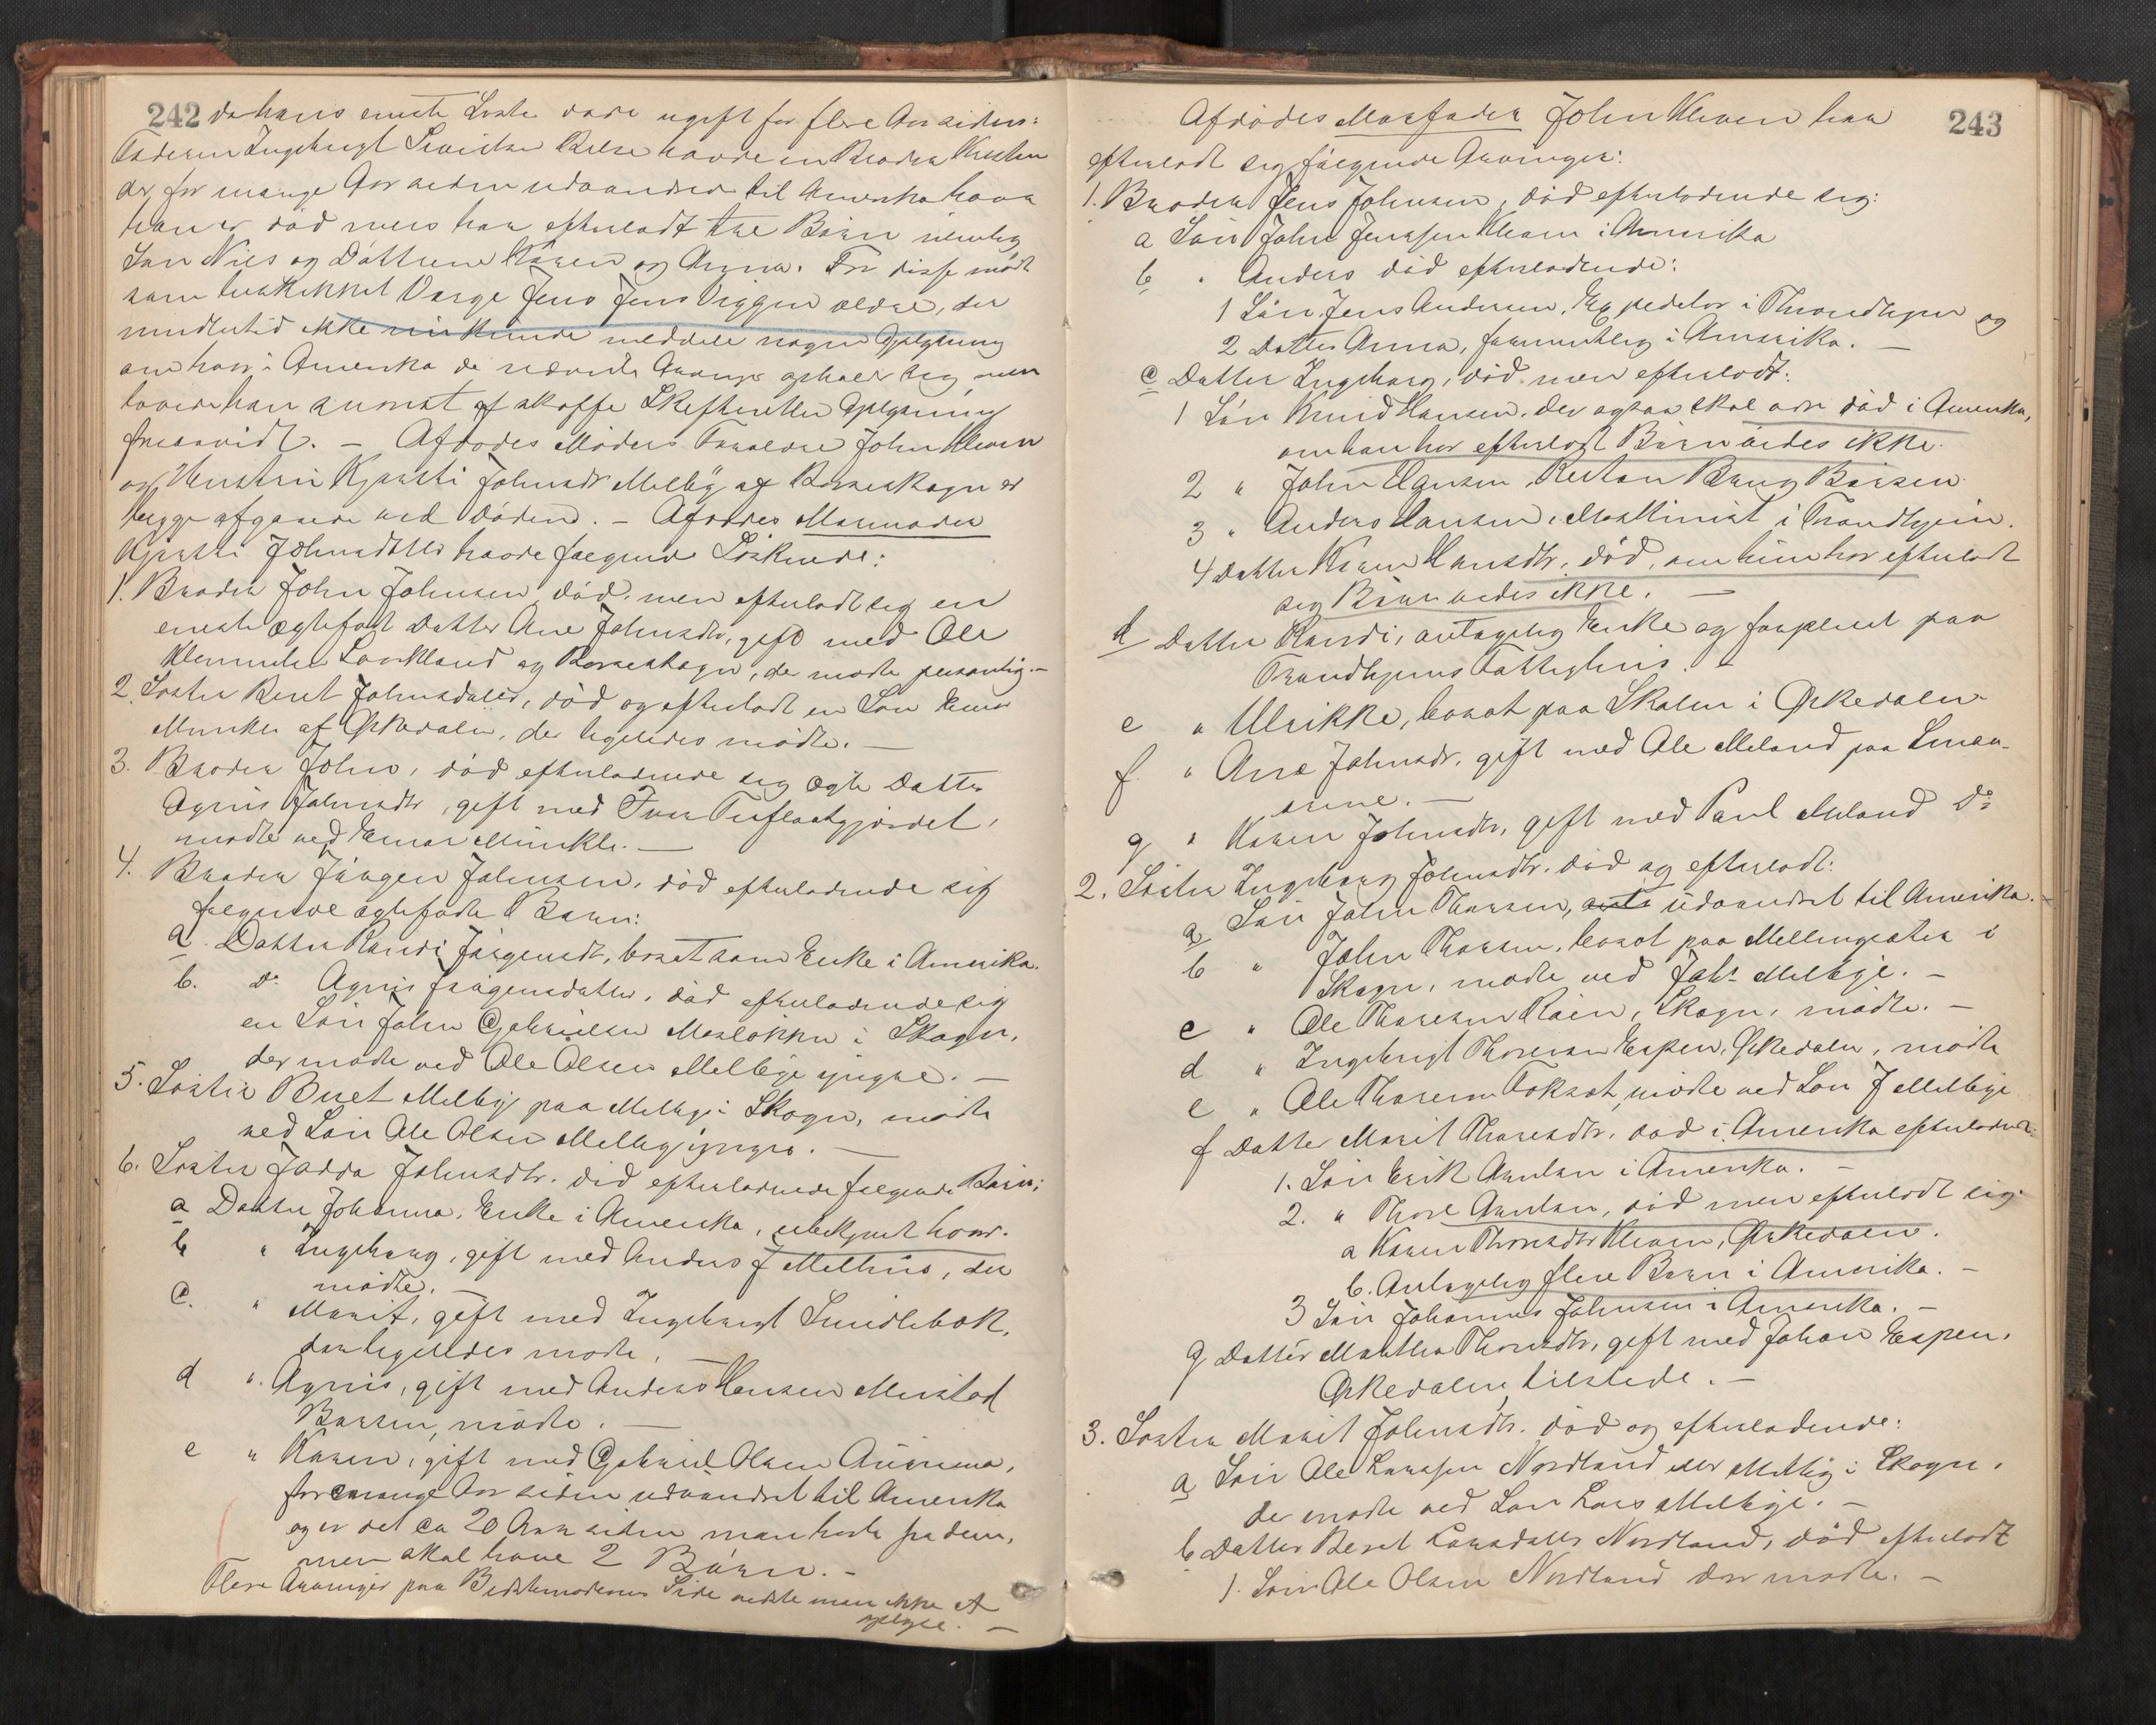 242 da hans eneste Søster døde ugift for flere Aar siden:
Faderen Ingebrigt Sivertsen Belse havde en Broder Kristen
der for mange Aar siden udvandred til Amerika hvor
han er død mens har efterladt tre Børn nemlig
Søn Nils og Døttrene Karen og Anna. For disse mødt
som beskikket Værge Jens Jens Viggen ældre, der
imidlertid ikke kunde meddele nogen Oplysning
om hvor i Amerika de nævnte Arvinger opholdt sig, men
lovede han snarest at skaffe Skifteretten Oplysning
forsaavidt. – Afdødes Moders Forældre John Kleven
og Hustru Kjersti Johnsdtr Melby af Børseskogn er
begge afgaaede ved Døden. – Afdødes Mormoder
Kjersti Johnsdatter havde følgende Søskende:
1. Broder John Johnsen, død, men efterladt sig en
eneste ægtefødt Datter Ane Johnsdtr, gift med Ole
Klemmetsen Lorkland og Børseskogn, der mødte personlig. –
2. Søster Beret Johnsdatter, død og efterladt en Søn Einar
Munkli af Ørkedalen, der ligeledes mødte. –
3. Broder John, død efterladende sig ægte Datter
Agnis Johnsdtr, gift med Iver Tuflaatgjerdet,
mødte ved Einar Munkli. –
4. Broder Jørgen Johnsen, død efterladende sig
følgende ægtefødte Børn:
a. Datter Randi Jørgensdt, bosat som Enke i Amerika.
b. do Agnis Jørgensdatter, død efterladende sig
en Søn John Gabrielsen Mosløkken i Skogn,
der mødte ved Ole Olsen Melbye yngre. –
5. Søster Beret Melby paa Melbye i Skogn, mødte
ved Søn Ole Olsen Melby yngre. –
6. Søster Jødda Johnsdtr. død efterladende følgende Børn:
a Datter Johanna, Enke i Amerika, ubekjendt hvor.
b " Ingeborg, gift med Anders J Melhus, der
mødte. –
c. " Marit, gift med Ingebrigt Smidlebak,
der ligeledes mødte. –
d ". Agnis, gift med Anders Hansen Mustad
Børsen, mødte. –
e " Karen, gift med Gabriel Olsen Aunmo,
for mange Aar siden udvandret til Amerika
og er det ca 20 Aar siden man hørte fra dem,
men skal have 2 Børn. –
Flere Arvinger paa Bedstemoderens Side vidste man ikke at
oplyse. –
Afdødes Morfader John Kleven har 243
efterladt sig følgende Arvinger:
1. Broder Jens Johnsen, død efterladende sig:
a Søn John Jenssen Kleven i Amerika
b " Anders død efterladende:
1 Søn Jens Andersen, Expeditør i Throndhjem og
2 Datter Anna, formentlig i Amerika. –
c Datter Ingeborg, død men efterlodt:
1 Søn Knud Hansen, der ogsaa skal være død i Amerika,
om han har efterladt Børn vides ikke.
2 " John Hansen, Rustan Brug Børsen
3 " Anders Hansen, Maskinist i Trondhjem.
4 Datter Karen Hansdtr, død, om hun har efterladt
sig Børn vides ikke. –
d Datter Randi, antagelig Enke og forpleiet paa
Trondhjems Fattighus. –
e " Ulrikke, bosat paa Skolen i Ørkedalen
f. " Ane Johnsdr, gift med Ole Meland paa Smøø-
erne. –
g " Karen Johnsdtr, gift med Paul Meland do
2. Søster Ingeborg Johnsdtr. død og efterlodt:
a Søn John Thoresen, udvandret til Amerika. –
b " John Thoresen, bosat paa Mellingsæter i
Skogn, mødte ved Johs Melbye. –
c " Ole Thoresen Røen, Skogn, mødte. –
d " Ingebrigt Thoresen Espen, Ørkedalen, mødte
e " Ole Thoresen Foksæt, mødte ved Søn J Melbye
f Datter Marit Thoresdtr. død i Amerika efterladende:
1. Søn Erik Arntsen i Amerika. –
2. " Thore Arntsen, død men efterlodt sig:
a Karen Thoresdtr Kleven, Ørkedalen.
b. Antagelig flere Børn i Amerika. –
3 Søn Johannes Johnsen i Amerika. –
g Datter Marthe Thoresdtr, gift med Johan Espen,
Ørkedalen, tilstede. –
3. Søster Marit Johnsdtr. død og efterladende:
a Søn Ole Larssen Nordland eller Melby i Skogn,
der mødte ved Søn Lars Melbye. –
b Datter Beret Larsdatter Nordland, død efterlodt
1. Søn Ole Olsen Nordland der mødte. –